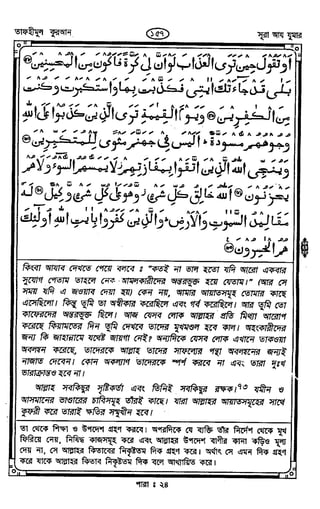 তাফহীমুল কুরআন ১৫৭ সূরা আয যুমার
اَوْ تَقُوْلَ حِيْنَ تَرَى الْعَذَابَ لَوْ اَنَّ لِىْ كَرَّةً فَاَكُوْنَ مِنَ الْمُحْسِنِيْنَ
بَلٰى قَدْ جَآءَتْكَ اٰيٰتِىْ فَكَذَّبْتَ بِهَا وَاسْتَكْبَرْتَ وَكُنْتَ
مِنَ الْكٰفِرِيْنَ وَيَوْمَ الْقِيٰمَةِ تَرَى الَّذِيْنَ كَذَبُوْا عَلَى اللّٰهِ
وُجُوْهُهُمْ مُّسْوَدَّةٌ اَلَيْسَ فِىْ جَهَنَّمَ مَثْوًى لِّلْمُتَكَبِّرِيْنَ
وَيُنَجِّى اللّٰهُ الَّذِيْنَ اتَّقَوْا بِمَفَازَتِهِمْ لَا يَمَسُّهُمُ السُّوْٓءُ وَلَا هُمْ
يَحْزَنُوْنَ اَللّٰهُ خَالِقُ كُلِّ شَىْءٍ وَّهُوَ عَلٰى كُلِّ شَىْءٍ وَّكِيْلٌ
لَهٗ مَقَالِيْدُ السَّمٰوٰتِ وَالْاَرْضِ وَالَّذِيْنَ كَفَرُوْا بِاٰيٰتِ اللّٰهِ اُولٰٓئِكَ
هُمُ الْخٰسِرُوْنَ
কিংবা আযাব দেখতে পেয়ে বলবে ঃ "কতই না ভাল হতো যদি আরো একবার
সুযোগ পেতাম তাহলে নেক আমলকারীদের অন্তরভুক্ত হয়ে যেতাম।" (আর সে
সময় যদি এ জওয়াব দেয়া হয়) কেন নয়, আমার আয়াতসমূহ তোমার কাছে
এসেছিলো। কিন্তু তুমি তা অস্বীকার করেছিলে এবং গর্ব করেছিলে। আর তুমি তো
কাফেরদের অন্তরভুক্ত ছিলে। আজ যেসব লোক আল্লাহর প্রতি মিথ্যা আরোপ
করেছে কিয়ামতের দিন তুমি দেখবে তাদের মুখমণ্ডল হবে কাল। অহংকারীদের
জন্য কি জাহান্নামে যথেষ্ট জায়গা নেই? অন্যদিকে যেসব লোক এখানে তাকওয়া
অবলম্বন করেছে, তাদেরকে আল্লাহ তাদের সাফল্যের পন্থা অবলম্বনের জন্যই
নাজাত দেবেন। কোন অকল্যাণ তাদেরকে স্পর্শ করবে না এবং তারা দুঃখ
ভারাক্রান্তও হবে না।
আল্লাহ সবকিছুর সৃষ্টিকর্তা এবং তিনিই সবকিছুর রক্ষক।৭৩ যমীন ও
আসমানের ভাণ্ডারের চাবিসমূহ তাঁরই কাছে। যারা আল্লাহর আয়াতসমূহের সাথে
কুফরী করে তারাই ক্ষতির সম্মুখীন হবে।
তা থেকে শিক্ষা ও উপদেশ গ্রহণ করবে। অপরদিকে যে ব্যক্তি তাঁর নির্দেশ থেকে মুখ
ফিরিয়ে নেয়, নিষিদ্ধ কাজসমূহ করে এবং আল্লাহর উপদেশ বাণীর কানা কড়িও মূল্য
দেয় না, সে আল্লাহর কিতাবের নিকৃষ্টতম দিক গ্রহণ করে। অর্থাৎ সে এমন দিক গ্রহণ
করে যাকে আল্লাহর কিতাব নিকৃষ্টতম দিক বলে আখ্যায়িত করে।
পারা ঃ ২৪